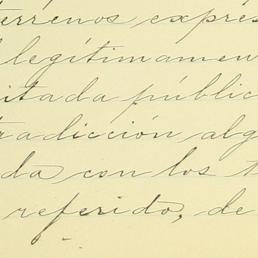 terrenos exprés
legítimamen
itada públic
tradicción alg
da con los t
referido, de